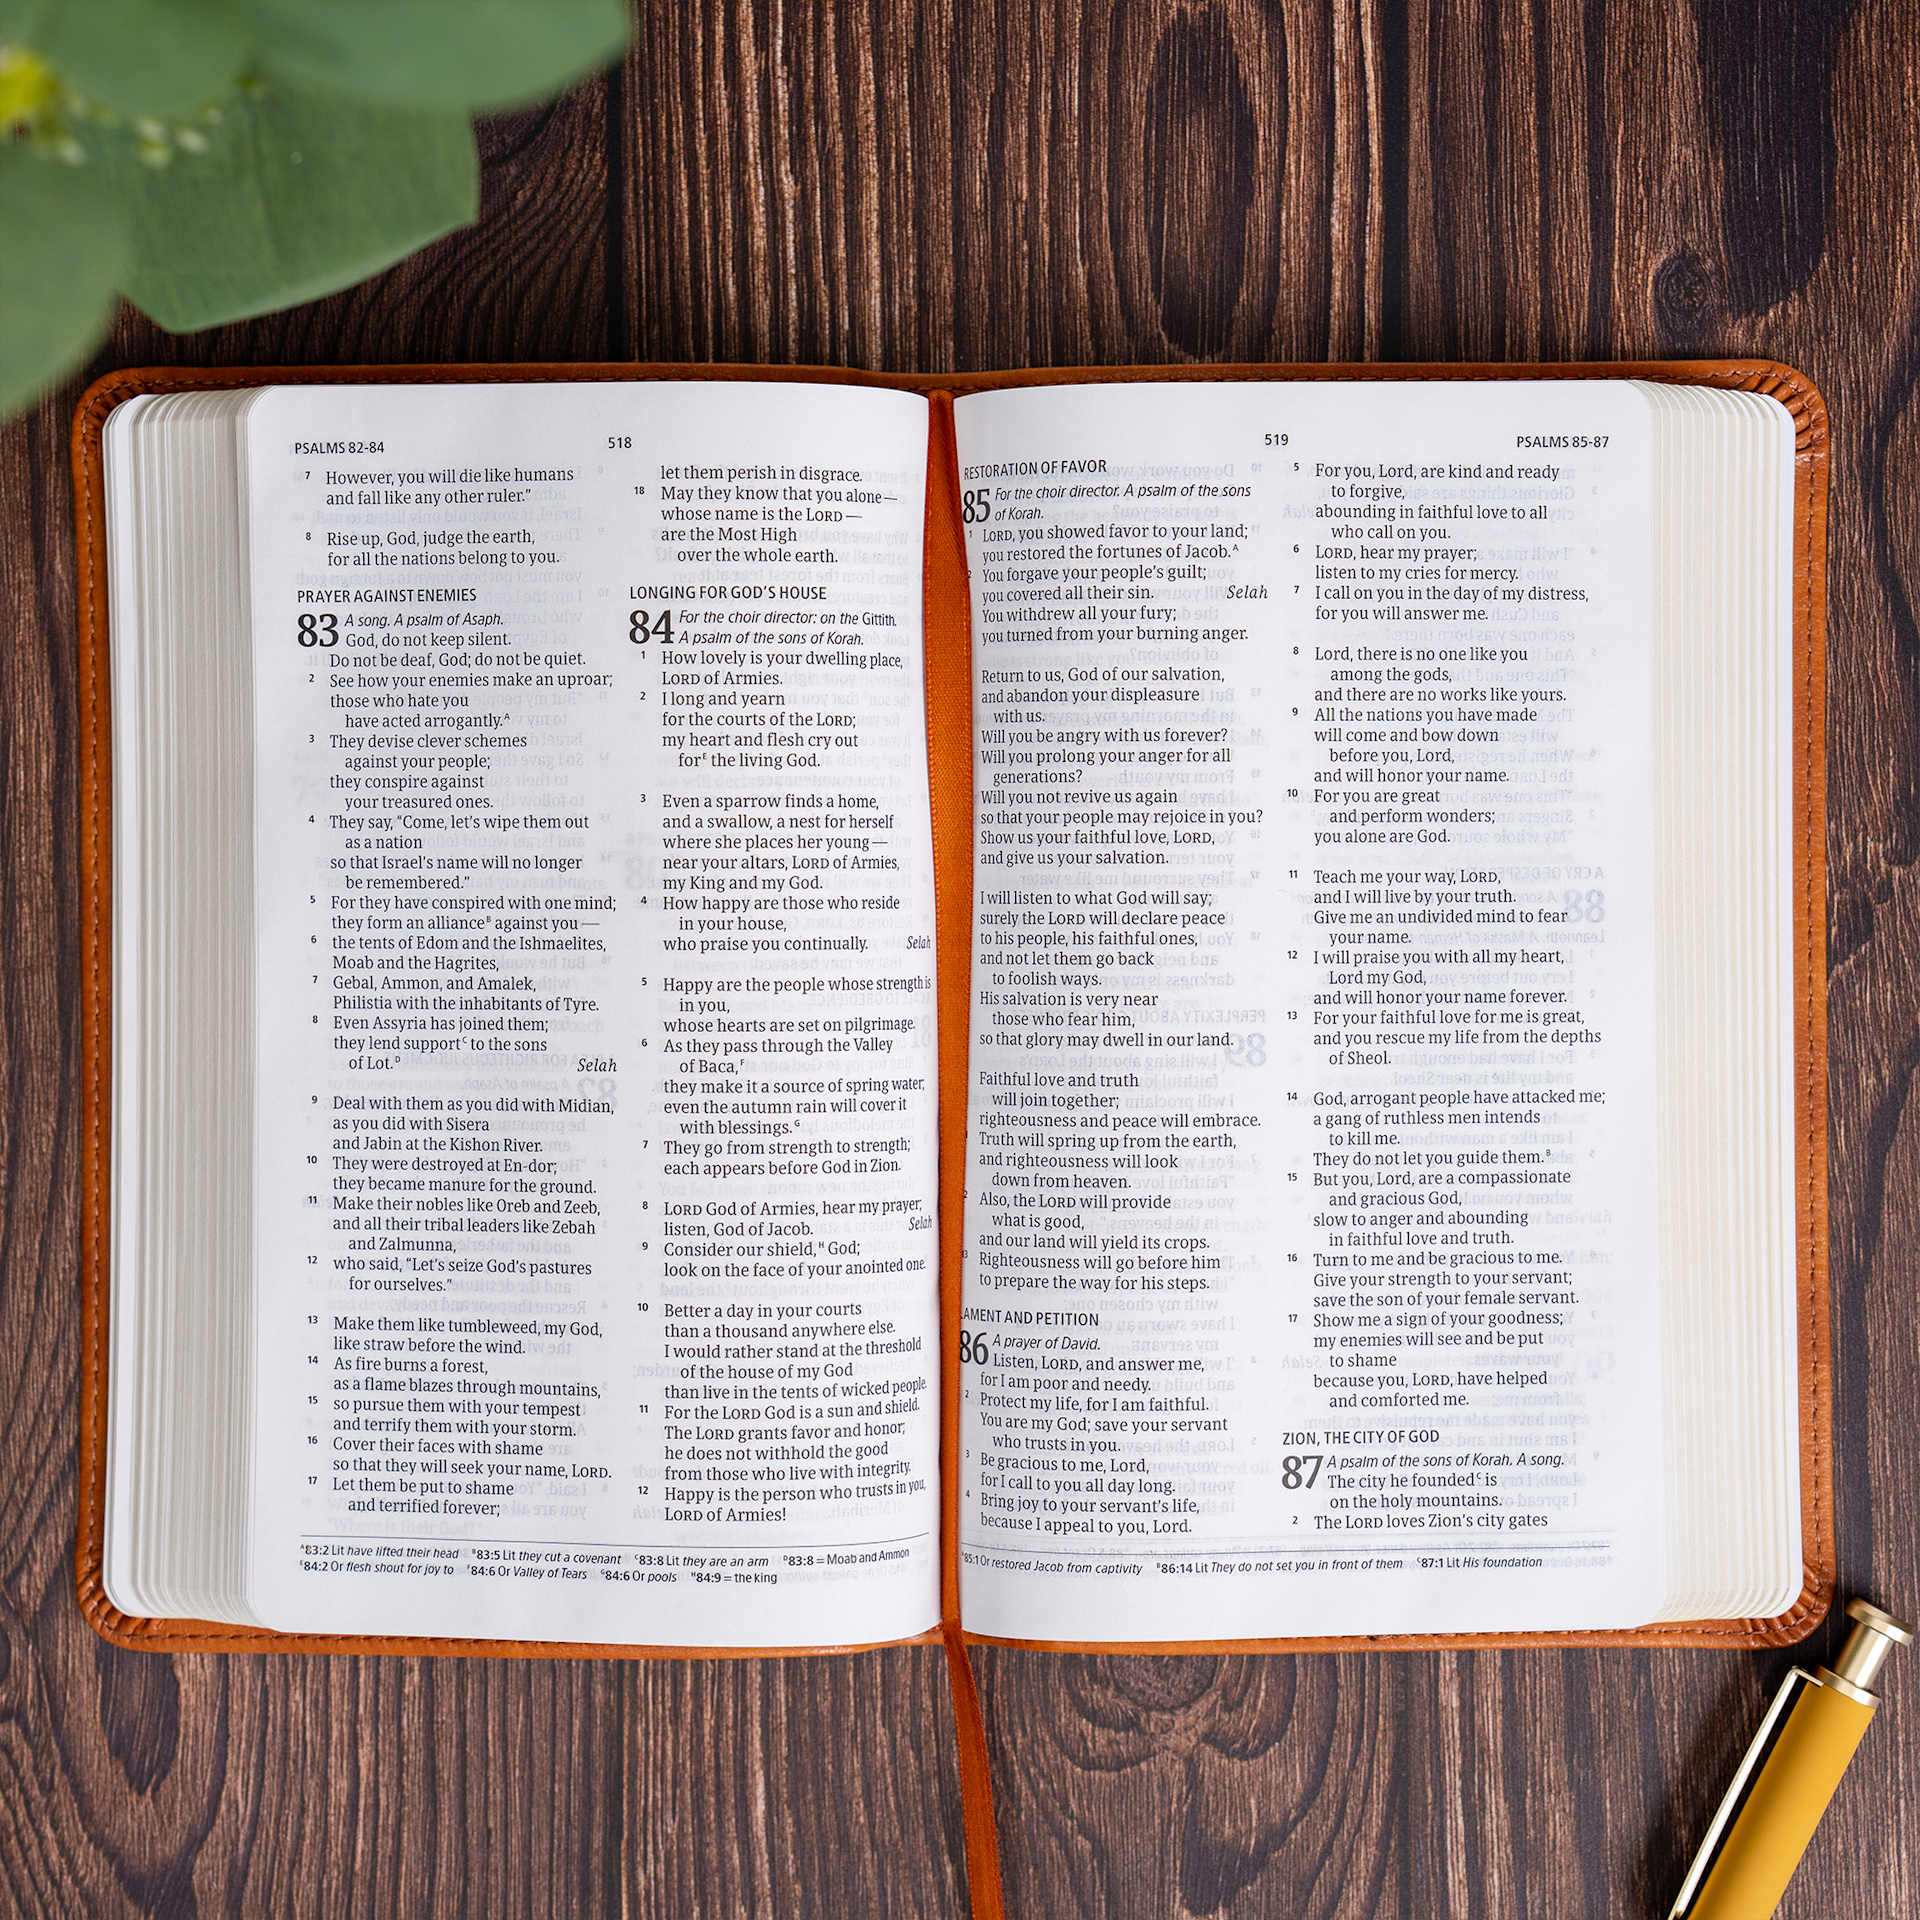 PSALMS 82-84
518
7 However, you will die like humans
and fall like any other ruler.”
8 Rise up, God, judge the earth,
for all the nations belong to you.
PRAYER AGAINST ENEMIES
83 A song. A psalm of Asaph.
God, do not keep silent.
Do not be deaf, God; do not be quiet.
2 See how your enemies make an uproar;
those who hate you
have acted arrogantly.A
3 They devise clever schemes
against your people;
they conspire against
your treasured ones.
4 They say, “Come, let’s wipe them out
as a nation
so that Israel’s name will no longer
be remembered.”
5 For they have conspired with one mind;
they form an allianceB against you —
6 the tents of Edom and the Ishmaelites,
Moab and the Hagrites,
7 Gebal, Ammon, and Amalek,
Philistia with the inhabitants of Tyre.
8 Even Assyria has joined them;
they lend supportC to the sons
of Lot.D Selah
9 Deal with them as you did with Midian,
as you did with Sisera
and Jabin at the Kishon River.
10 They were destroyed at En-dor;
they became manure for the ground.
11 Make their nobles like Oreb and Zeeb,
and all their tribal leaders like Zebah
and Zalmunna,
12 who said, “Let’s seize God’s pastures
for ourselves.”
13 Make them like tumbleweed, my God,
like straw before the wind.
14 As fire burns a forest,
as a flame blazes through mountains,
15 so pursue them with your tempest
and terrify them with your storm.
16 Cover their faces with shame
so that they will seek your name, LORD.
17 Let them be put to shame
and terrified forever;
let them perish in disgrace.
18 May they know that you alone —
whose name is the LORD —
are the Most High
over the whole earth.
LONGING FOR GOD’S HOUSE
84 For the choir director: on the Gittith.
A psalm of the sons of Korah.
1 How lovely is your dwelling place,
LORD of Armies.
2 I long and yearn
for the courts of the LORD;
my heart and flesh cry out
forE the living God.
3 Even a sparrow finds a home,
and a swallow, a nest for herself
where she places her young —
near your altars, LORD of Armies,
my King and my God.
4 How happy are those who reside
in your house,
who praise you continually. Selah
5 Happy are the people whose strength is
in you,
whose hearts are set on pilgrimage.
6 As they pass through the Valley
of Baca,F
they make it a source of spring water;
even the autumn rain will cover it
with blessings.G
7 They go from strength to strength;
each appears before God in Zion.
8 LORD God of Armies, hear my prayer;
listen, God of Jacob. Selah
9 Consider our shield,H God;
look on the face of your anointed one.
10 Better a day in your courts
than a thousand anywhere else.
I would rather stand at the threshold
of the house of my God
than live in the tents of wicked people.
11 For the LORD God is a sun and shield.
The LORD grants favor and honor;
he does not withhold the good
from those who live with integrity.
12 Happy is the person who trusts in you,
LORD of Armies!
A83:2 Lit have lifted their head B83:5 Lit they cut a covenant C83:8 Lit they are an arm D83:8 = Moab and Ammon
E84:2 Or flesh shout for joy to F84:6 Or Valley of Tears G84:6 Or pools H84:9 = the king
519
PSALMS 85-87
RESTORATION OF FAVOR
85 For the choir director. A psalm of the sons
of Korah.
1 LORD, you showed favor to your land;
you restored the fortunes of Jacob.A
2 You forgave your people’s guilt;
you covered all their sin. Selah
You withdrew all your fury;
you turned from your burning anger.
Return to us, God of our salvation,
and abandon your displeasure
with us.
Will you be angry with us forever?
Will you prolong your anger for all
generations?
Will you not revive us again
so that your people may rejoice in you?
Show us your faithful love, LORD,
and give us your salvation.
I will listen to what God will say;
surely the LORD will declare peace
to his people, his faithful ones,
and not let them go back
to foolish ways.
His salvation is very near
those who fear him,
so that glory may dwell in our land.
Faithful love and truth
will join together;
righteousness and peace will embrace.
Truth will spring up from the earth,
and righteousness will look
down from heaven.
2 Also, the LORD will provide
what is good,
and our land will yield its crops.
13 Righteousness will go before him
to prepare the way for his steps.
LAMENT AND PETITION
86 A prayer of David.
Listen, LORD, and answer me,
for I am poor and needy.
2 Protect my life, for I am faithful.
You are my God; save your servant
who trusts in you.
3 Be gracious to me, Lord,
for I call to you all day long.
4 Bring joy to your servant’s life,
because I appeal to you, Lord.
5 For you, Lord, are kind and ready
to forgive,
abounding in faithful love to all
who call on you.
6 LORD, hear my prayer;
listen to my cries for mercy.
7 I call on you in the day of my distress,
for you will answer me.
8 Lord, there is no one like you
among the gods,
and there are no works like yours.
9 All the nations you have made
will come and bow down
before you, Lord,
and will honor your name.
10 For you are great
and perform wonders;
you alone are God.
11 Teach me your way, LORD,
and I will live by your truth.
Give me an undivided mind to fear
your name.
12 I will praise you with all my heart,
Lord my God,
and will honor your name forever.
13 For your faithful love for me is great,
and you rescue my life from the depths
of Sheol.
14 God, arrogant people have attacked me;
a gang of ruthless men intends
to kill me.
They do not let you guide them.B
15 But you, Lord, are a compassionate
and gracious God,
slow to anger and abounding
in faithful love and truth.
16 Turn to me and be gracious to me.
Give your strength to your servant;
save the son of your female servant.
17 Show me a sign of your goodness;
my enemies will see and be put
to shame
because you, LORD, have helped
and comforted me.
ZION, THE CITY OF GOD
87 A psalm of the sons of Korah. A song.
The city he foundedC is
on the holy mountains.
2 The LORD loves Zion’s city gates
A85:1 Or restored Jacob from captivity B86:14 Lit They do not set you in front of them C87:1 Lit His foundation